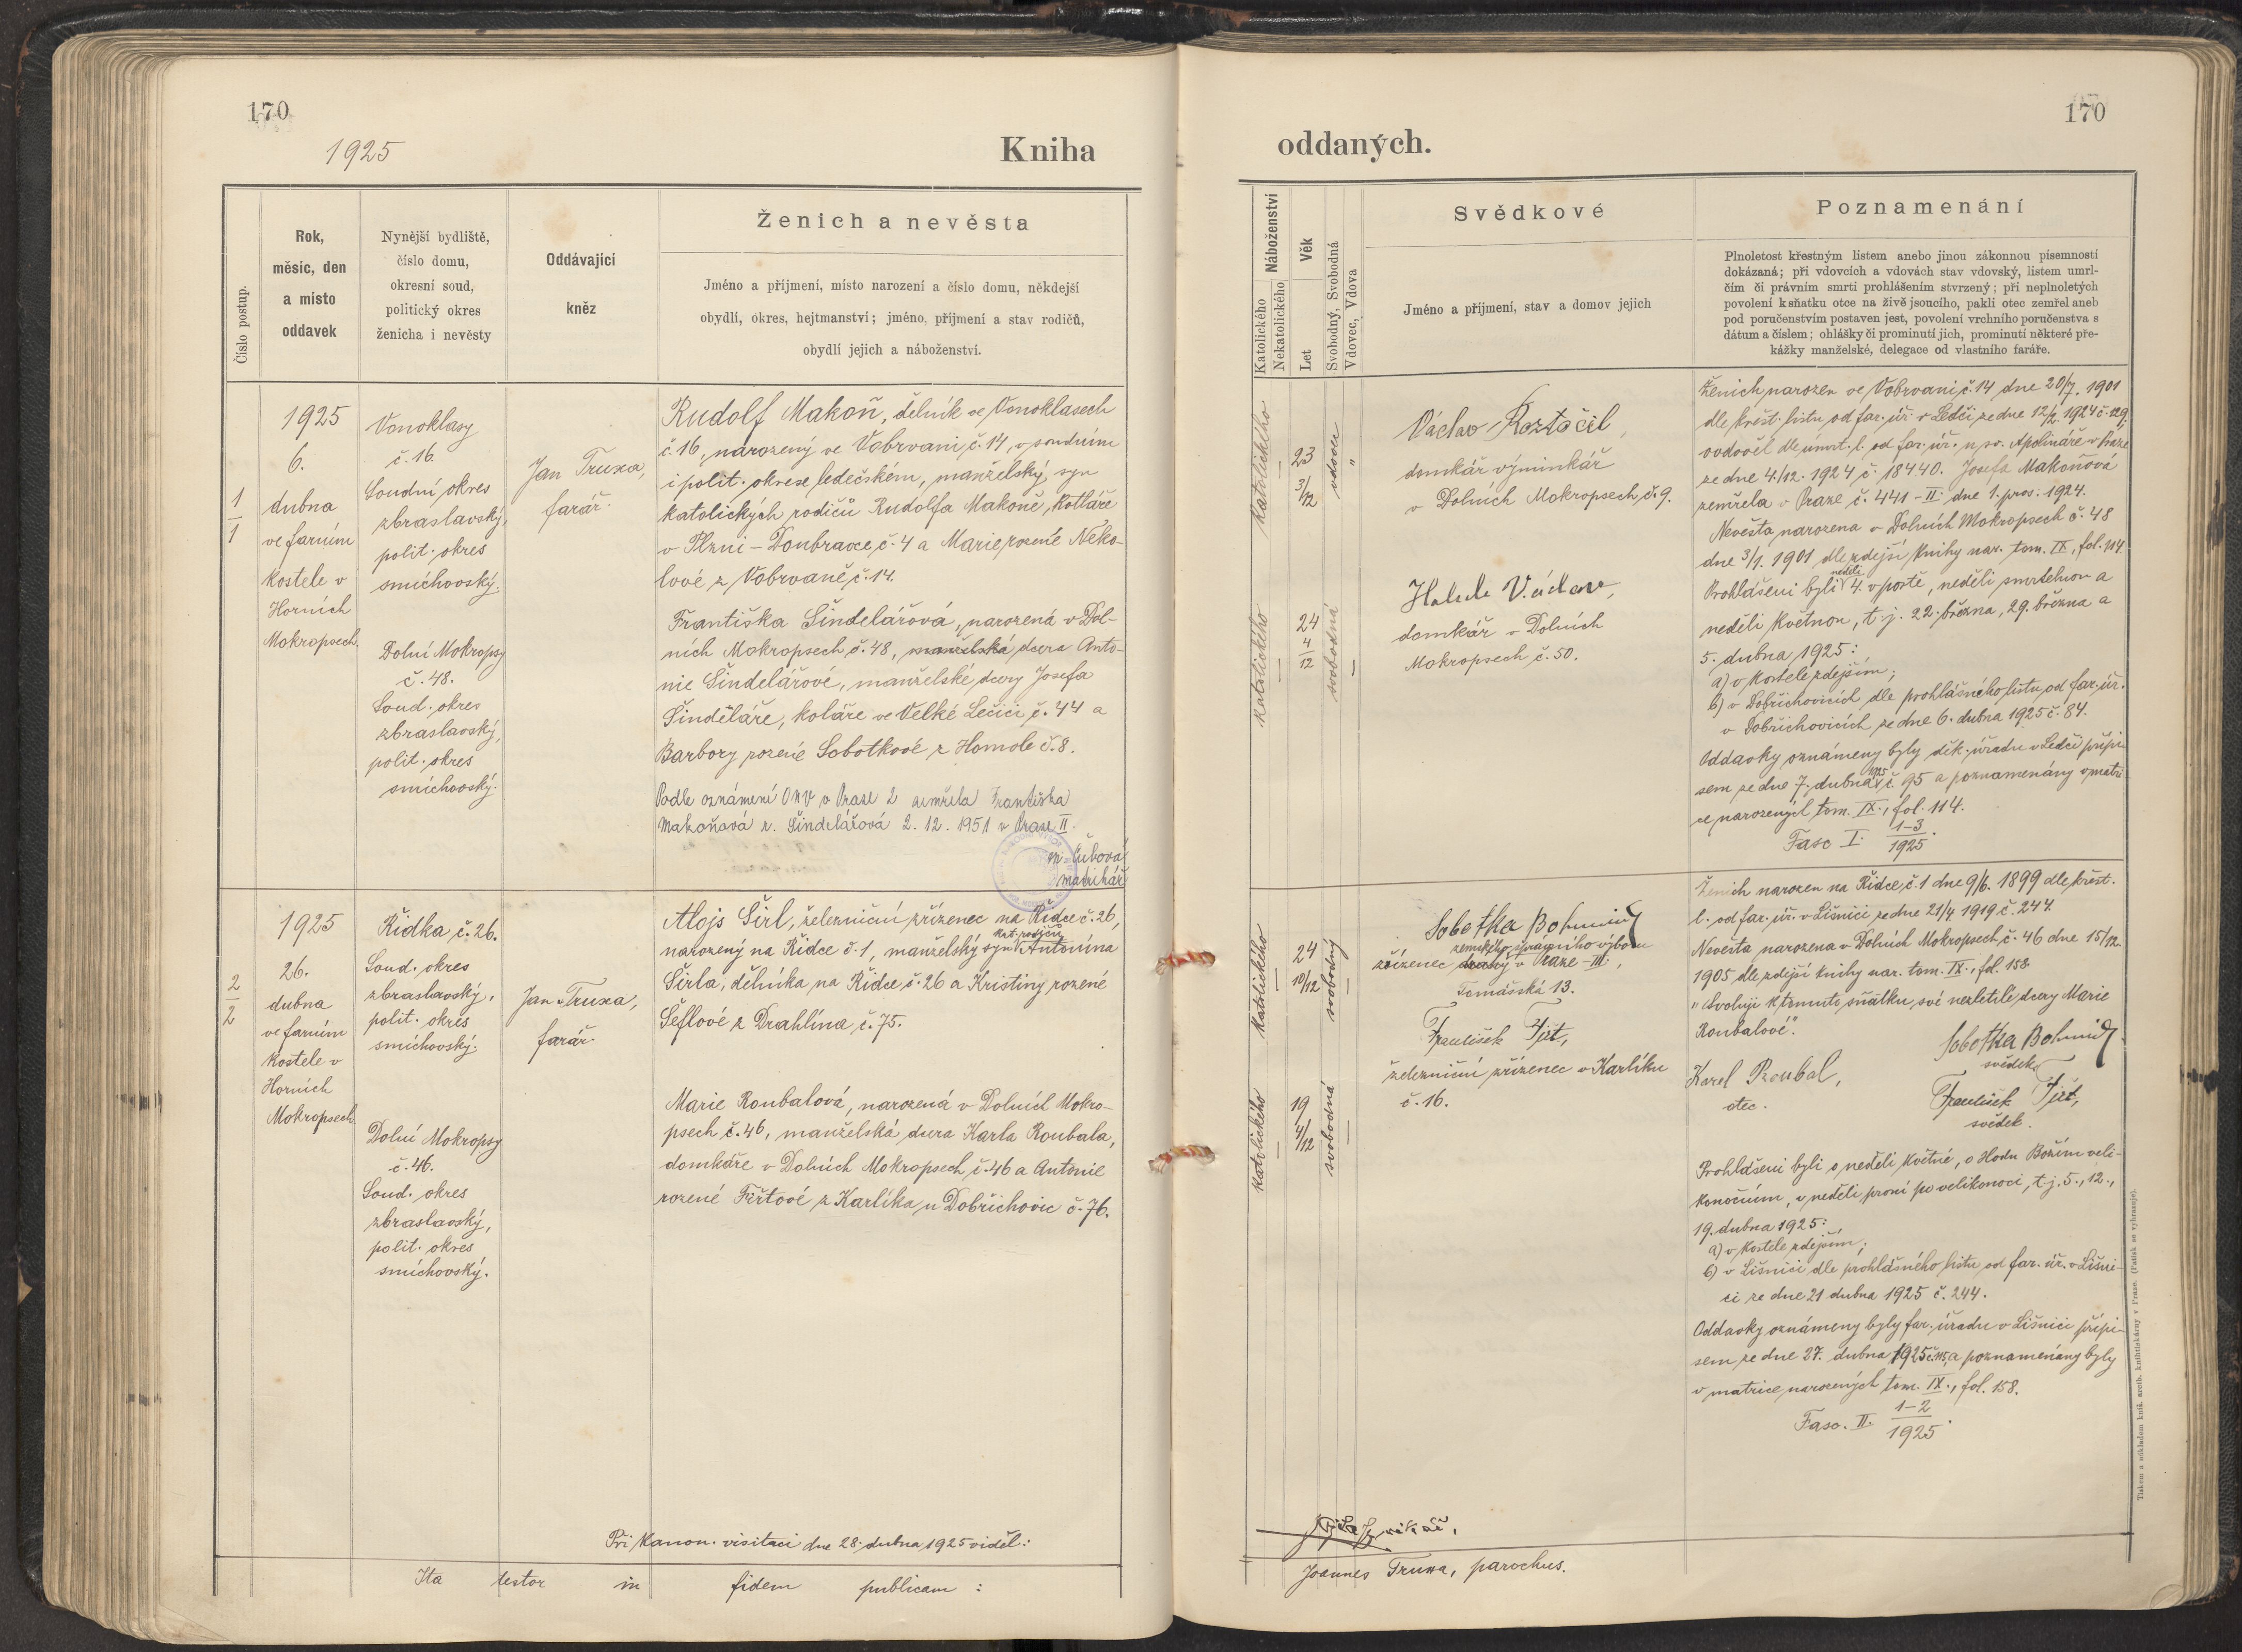 170
1925
Kniha
Číslo postup.
Rok,
měsíc, den
a místo
oddavek
Nynější bydliště,
číslo domu,
okresní soud,
politický okres
ženicha i nevěsty
Oddávající
kněz
Ženich a nevěsta
Jméno a příjmení, místo narození a číslo domu, někdejší
obydlí, okres, hejtmanství; jméno, příjmení a stav rodičů,
obydlí jejich a náboženství.
1
1
1925
6.
dubna
ve farním
kostele v
Horních
Mokropsech.
Vonoklasy
č. 16.
Soudní okres
zbraslavský,
polit. okres
smíchovský.
Dolní Mokropsy
č. 48.
Soud. okres
zbraslavský,
polit. okres
smíchovský.
Jan Truxa,
farář.
Rudolf Makoň, dělník ve Vonoklasech
č. 16, narozený ve Vobrvani, č. 14, v soudním
i polit. okrese ledečském, manželský syn
katolických rodičů Rudolfa Makoně, kotláře
v Plzni – Doubravce, č. 4 a Marie, rozené Neko-
lové z Vobrvaně, č. 14.
Františka Šindelářová, narozená v Dol-
ních Mokropsech, č. 48, manželská dcera Anto-
nie Šindelářové, manželské dcery Josefa
Šindeláře, koláře ve Velké Lečici č. 44 a
Barbory rozené Sobotkové z Homole č. 8.
Podle oznámení ONV v Praze 2 zemřela Františka
Makoňová r. Šindelářová 2. 12. 1951 v Praze II.
matrikář
2
2
1925
26.
dubna
ve farním
kostele v
Horních
Mokropsech.
Řidka č. 26.
Soud. okres
zbraslavský,
polit. okres
smíchovský.
Dolní Mokropsy
č. 46.
Soud. okres
zbraslavský,
polit. okres
smíchovský.
Jan Truxa,
farář.
Alojs Širl, železniční zřízenec na Řidce č. 26,
narozený na Řidce č. 1, manželský syn kat. rodičů Antonína
Širla, dělníka na Řidce č. 26 a Kristiny rozené
Šeflové z Drahlína, č. 75.
Marie Roubalová, narozená v Dolních Mokro-
psech č. 46, manželská dcera Karla Roubala,
domkáře v Dolních Mokropsech, č. 46 a Antonie
rozené Fiřtové z Karlíka u Dobřichovic č. 76.
Při kanon. visitaci dne 28. dubna 1925 viděl:
Ita testor in fidem publicam :
170
oddaných.
Náboženství
Katolického
Nekatolického
Věk
Let
Svobodný, Svobodná
Vdovec, Vdova
Svědkové
Jméno a příjmení, stav a domov jejich
Poznamenání
Plnoletost křestným listem anebo jinou zákonnou písemností
dokázaná; při vdovcích a vdovách stav vdovský, listem umrl-
čím či právním smrti prohlášením stvrzený; při neplnoletých
povolení k sňatku otce na živě jsoucího, pakli otec zemřel aneb
pod poručenstvím postaven jest, povolení vrchního poručenstva s
dátum a číslem; ohlášky či prominutí jich, prominutí některé pře-
kážky manželské, delegace od vlastního faráře.
katolického
23
3/12
vdovec
Václav Roztočil,
domkář výminkář
v Dolních Mokropsech, č. 9.
katolického
24
4
12
svobodná
Václav,
domkář v Dolních
Mokropsech č. 50.
Ženich narozen ve Vobrvani č. 14 dne 20/7. 1901
dle křest. listu od far. úř. v Ledči ze dne 12/2. 1924 č. 129;
ovdověl dle úmrt. l. od far. úř. u sv. Apolináře v Praze
ze dne 4./12. 1924 č. 18440. Josefa Makoňová
zemřela v Praze č. 441 – II. dne 1. pros. 1924.
Nevěsta narozena v Dolních Mokropsech č. 48
dne 3/1. 1901 dle zdejší knihy nar. tom. IX., fol. 114.
Prohlášeni byli neděli 4. v postě, neděli smrtelnou a
neděli květnou, t. j. 22. března, 29. března a
5. dubna 1925:
a) v kostele zdejším;
b) v Dobřichovicích dle prohlášného listu od far. úř.
v Dobřichovicích ze dne 6. dubna 1925 č. 84.
Oddavky oznámeny byly děk. úřadu v Ledči přípi-
sem ze dne 7. dubna 1925 č. 95 a poznamenány v matri-
ce narozených tom. IX., fol. 114.
Fasc I. 1–3
1925.
katolického
24
10/12
svobodný
Sobotka Bohumil
zemského správního výboru
zřízenec v Praze – III.,
Tomášská 13.
František Fiřt,
železniční zřízenec v Karlíku
č. 16.
katolického
19
4/12
svobodná
Ženich narozen na Řidce, č. 1 dne 9/6. 1899 dle křest.
l. od far. úř. v Líšnici ze dne 21/4 1919 č. 244.
Nevěsta narozena v Dolních Mokropsech, č. 46 dne 15/12.
1905 dle zdejší knihy nar. tom. IX., fol. 158.
„Svoluji k tomuto sňatku své nezletilé dcery Marie
Roubalové“.
Sobotka Bohumil
svědek
Karel Roubal,
otec.
František Fiřt,
svědek.
Prohlášeni byli v neděli květné, o Hodu Božím veli-
konočním, v neděli první po velikonoci, t. j. 5., 12.,
19. dubna 1925:
a) v kostele zdejším;
b) v Líšnici dle prohlášného listu od far. úř. v Líšni-
ci ze dne 21 dubna 1925 č. 244.
Oddavky oznámeny byly far. úřadu v Líšnici přípi-
sem ze dne 27. dubna 1925 č. 115, a poznamenány byly
v matrice narozených tom. IX., fol. 158.
Fasc. II. 1–2
1925.
Joannes Truxa, parochus.
Tiskem a nákladem kníž. arcib. knihtiskárny v Praze. (Patisk se vyhrazuje).